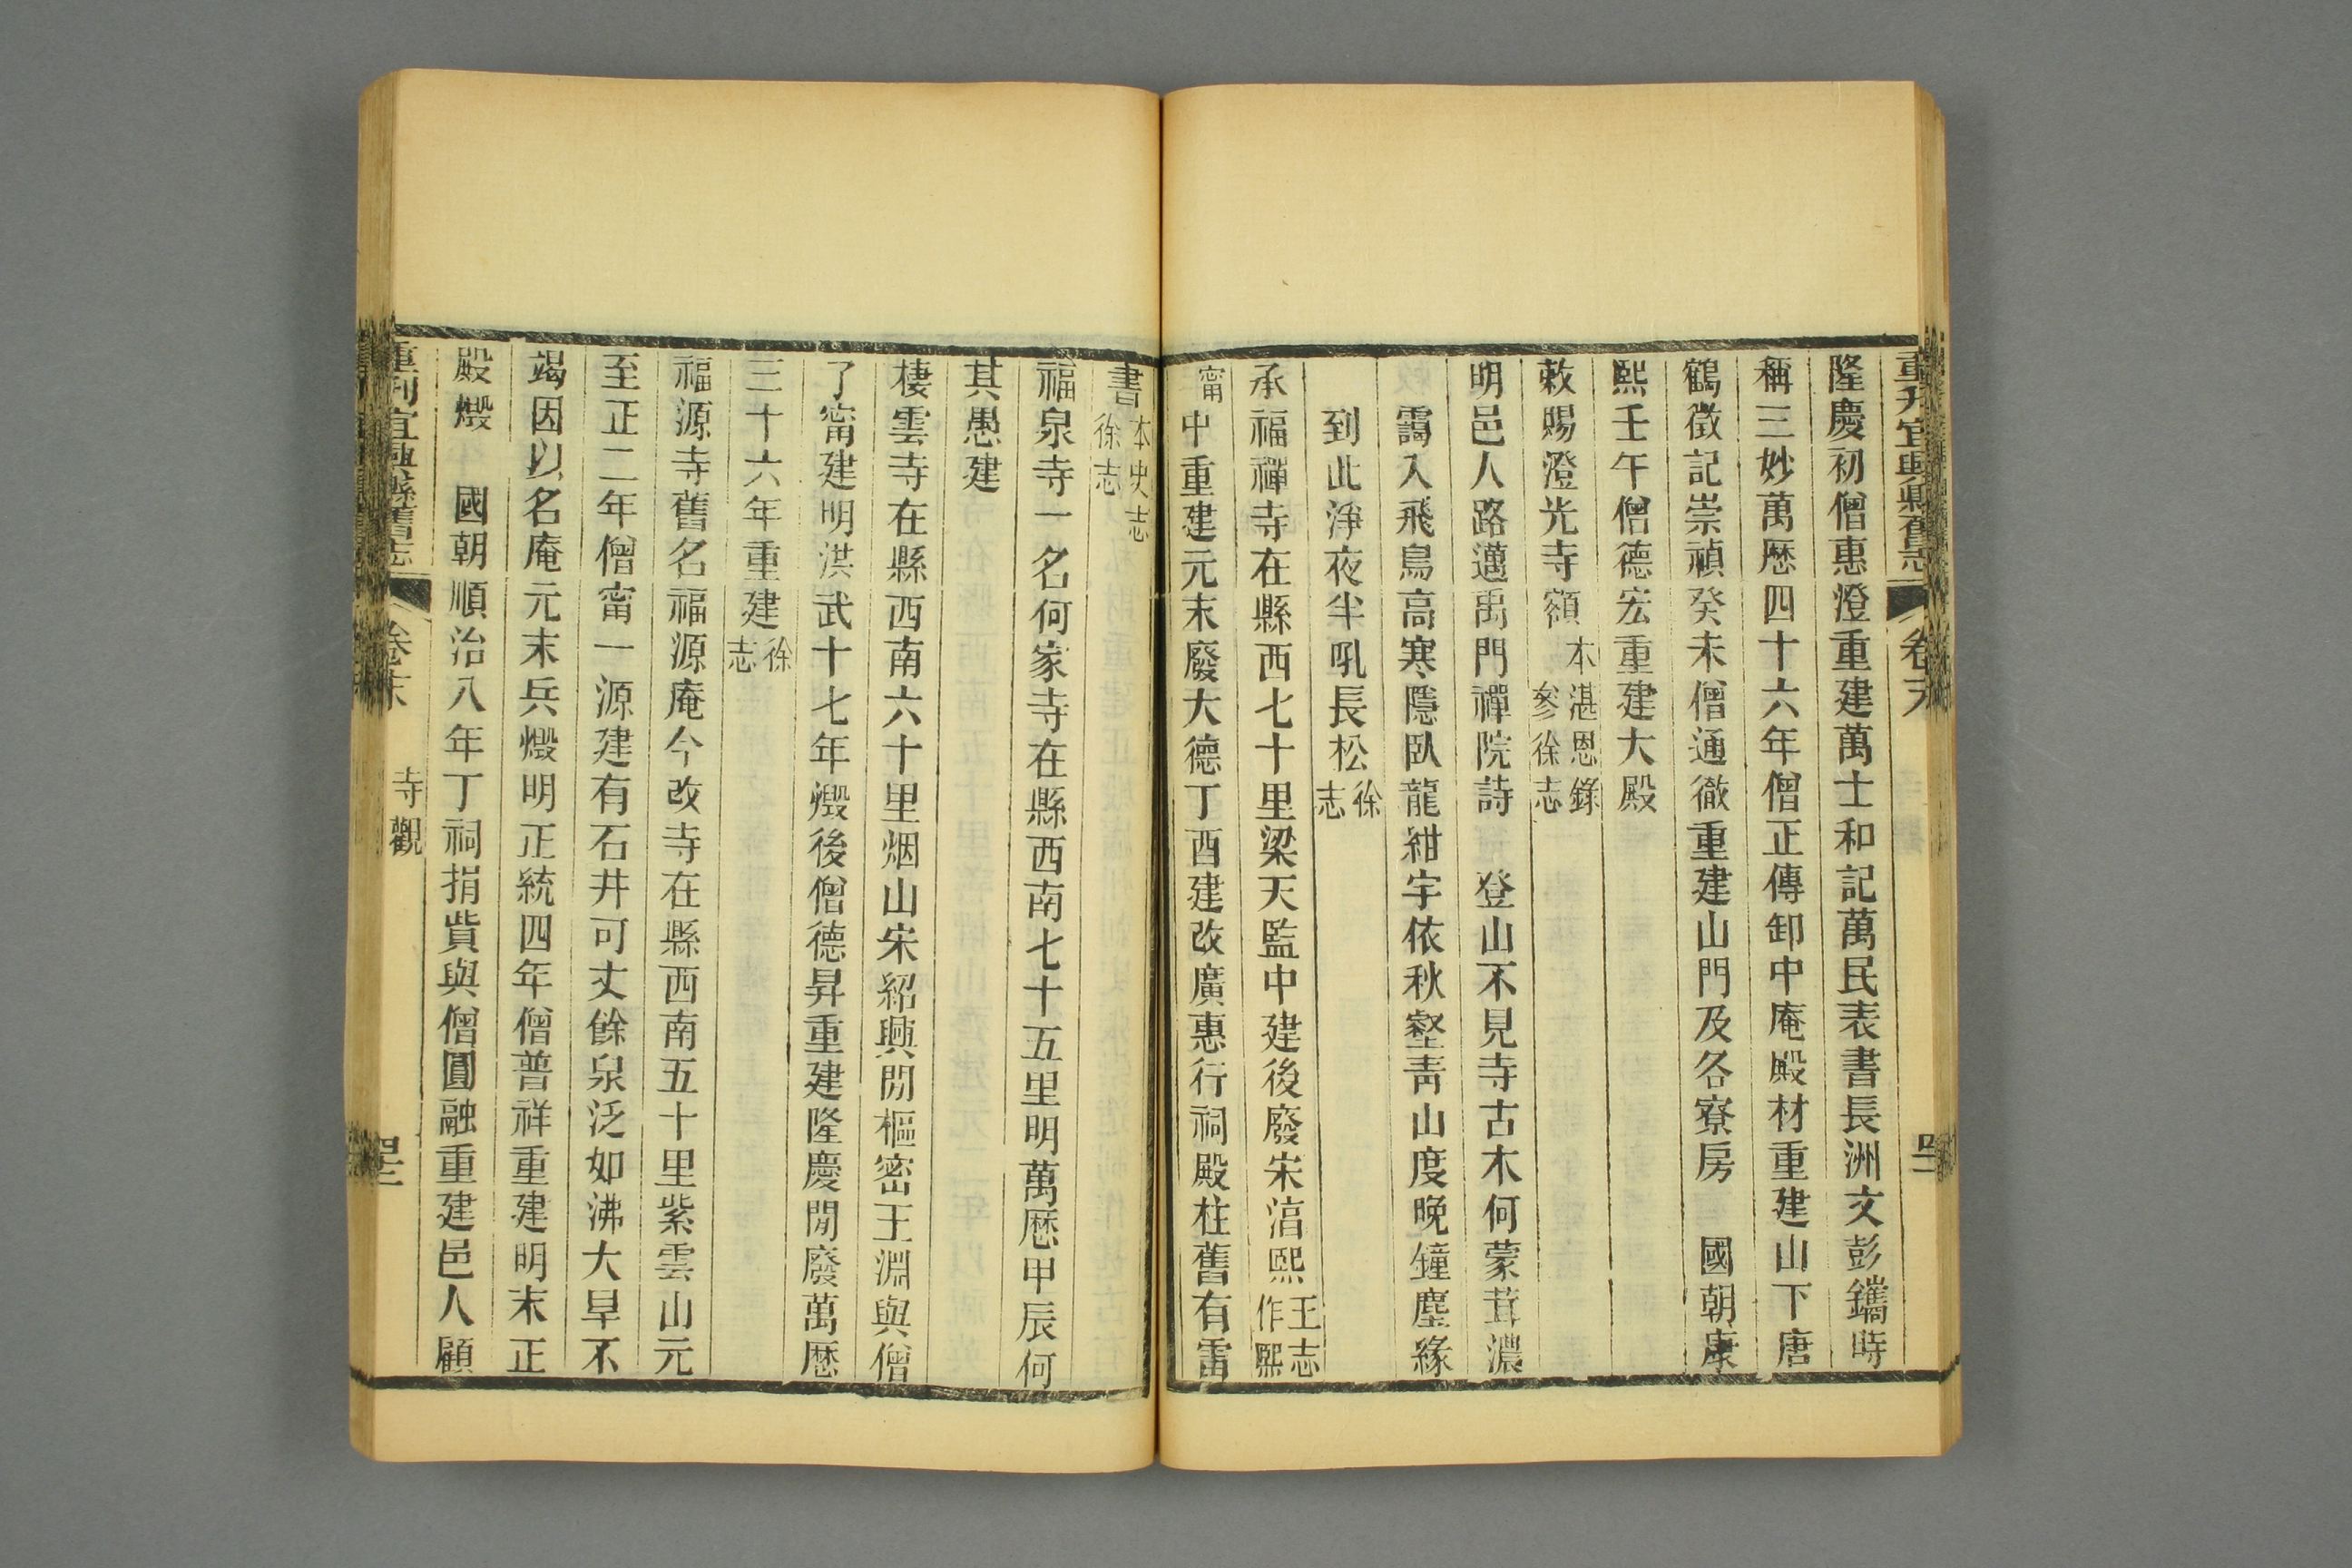 重刋宜興縣舊志 卷末
隆慶初僧惠澄重建萬士和記萬民表書長洲文彭鐫時
稱三妙萬歷四十六年僧正傳卸中庵殿材重建山下唐
鶴徵記崇禎癸未僧通徹重建山門及各寮房 國朝康
熙壬午僧德宏重建大殿
敕賜澄光寺額本湛恩錄參徐志
明邑人路邁禹門禪院詩 登山不見寺古木何蒙茸濃
靄入飛鳥高寒隱臥龍紺宇依秋壑青山度晚鐘塵緣
到此淨夜半吼長松徐志
承福禪寺在縣西七十里梁天監中建後廢宋湻熙王志作熙
甯中重建元末廢大德丁酉建改廣惠行祠殿柱舊有雷
書本史志徐志
福泉寺一名何家寺在縣西南七十五里明萬歷甲辰何
其愚建
棲雲寺在縣西南六十里烟山宋紹興閒樞密王淵與僧
了甯建明洪武十七年燬後僧德昇重建隆慶閒廢萬歷
三十六年重建徐志
福源寺舊名福源庵今改寺在縣西南五十里紫雲山元
至正二年僧甯一源建有石井可丈餘泉泛如沸大旱不
竭因以名庵元末兵燬明正統四年僧普祥重建明末正
殿燬 國朝順治八年丁祠捐貲與僧圓融重建邑人顧
重刋宜興縣舊志 卷末 寺觀